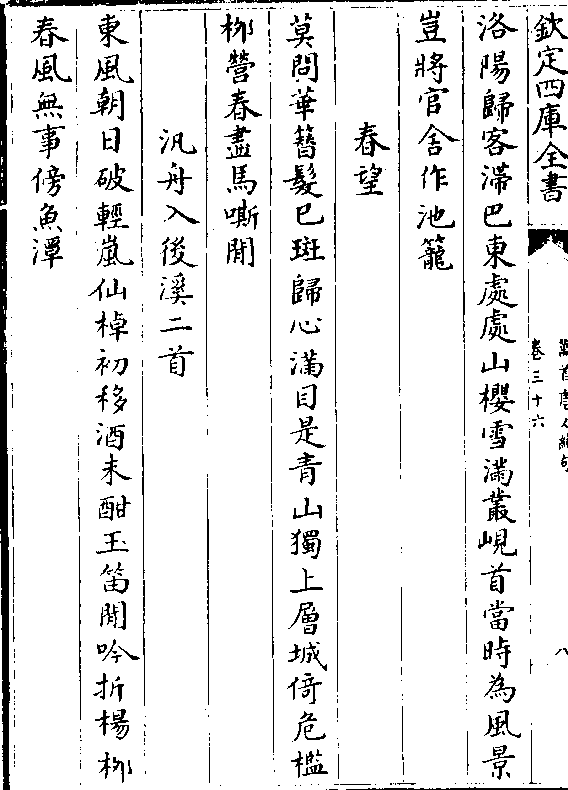 欽定四庫全書
卷三十六
八
洛陽歸客滯巴東處處山櫻雪滿叢峴首當時為風景
豈將官舍作池籠
春望
莫問華簪髮已斑歸心滿目是青山獨上層城倚危檻
柳營春盡馬嘶閒
汎舟入後溪二首
東風朝日破輕嵐仙棹初移酒未酣玉笛閒吟折楊柳
春風無事傍魚潭